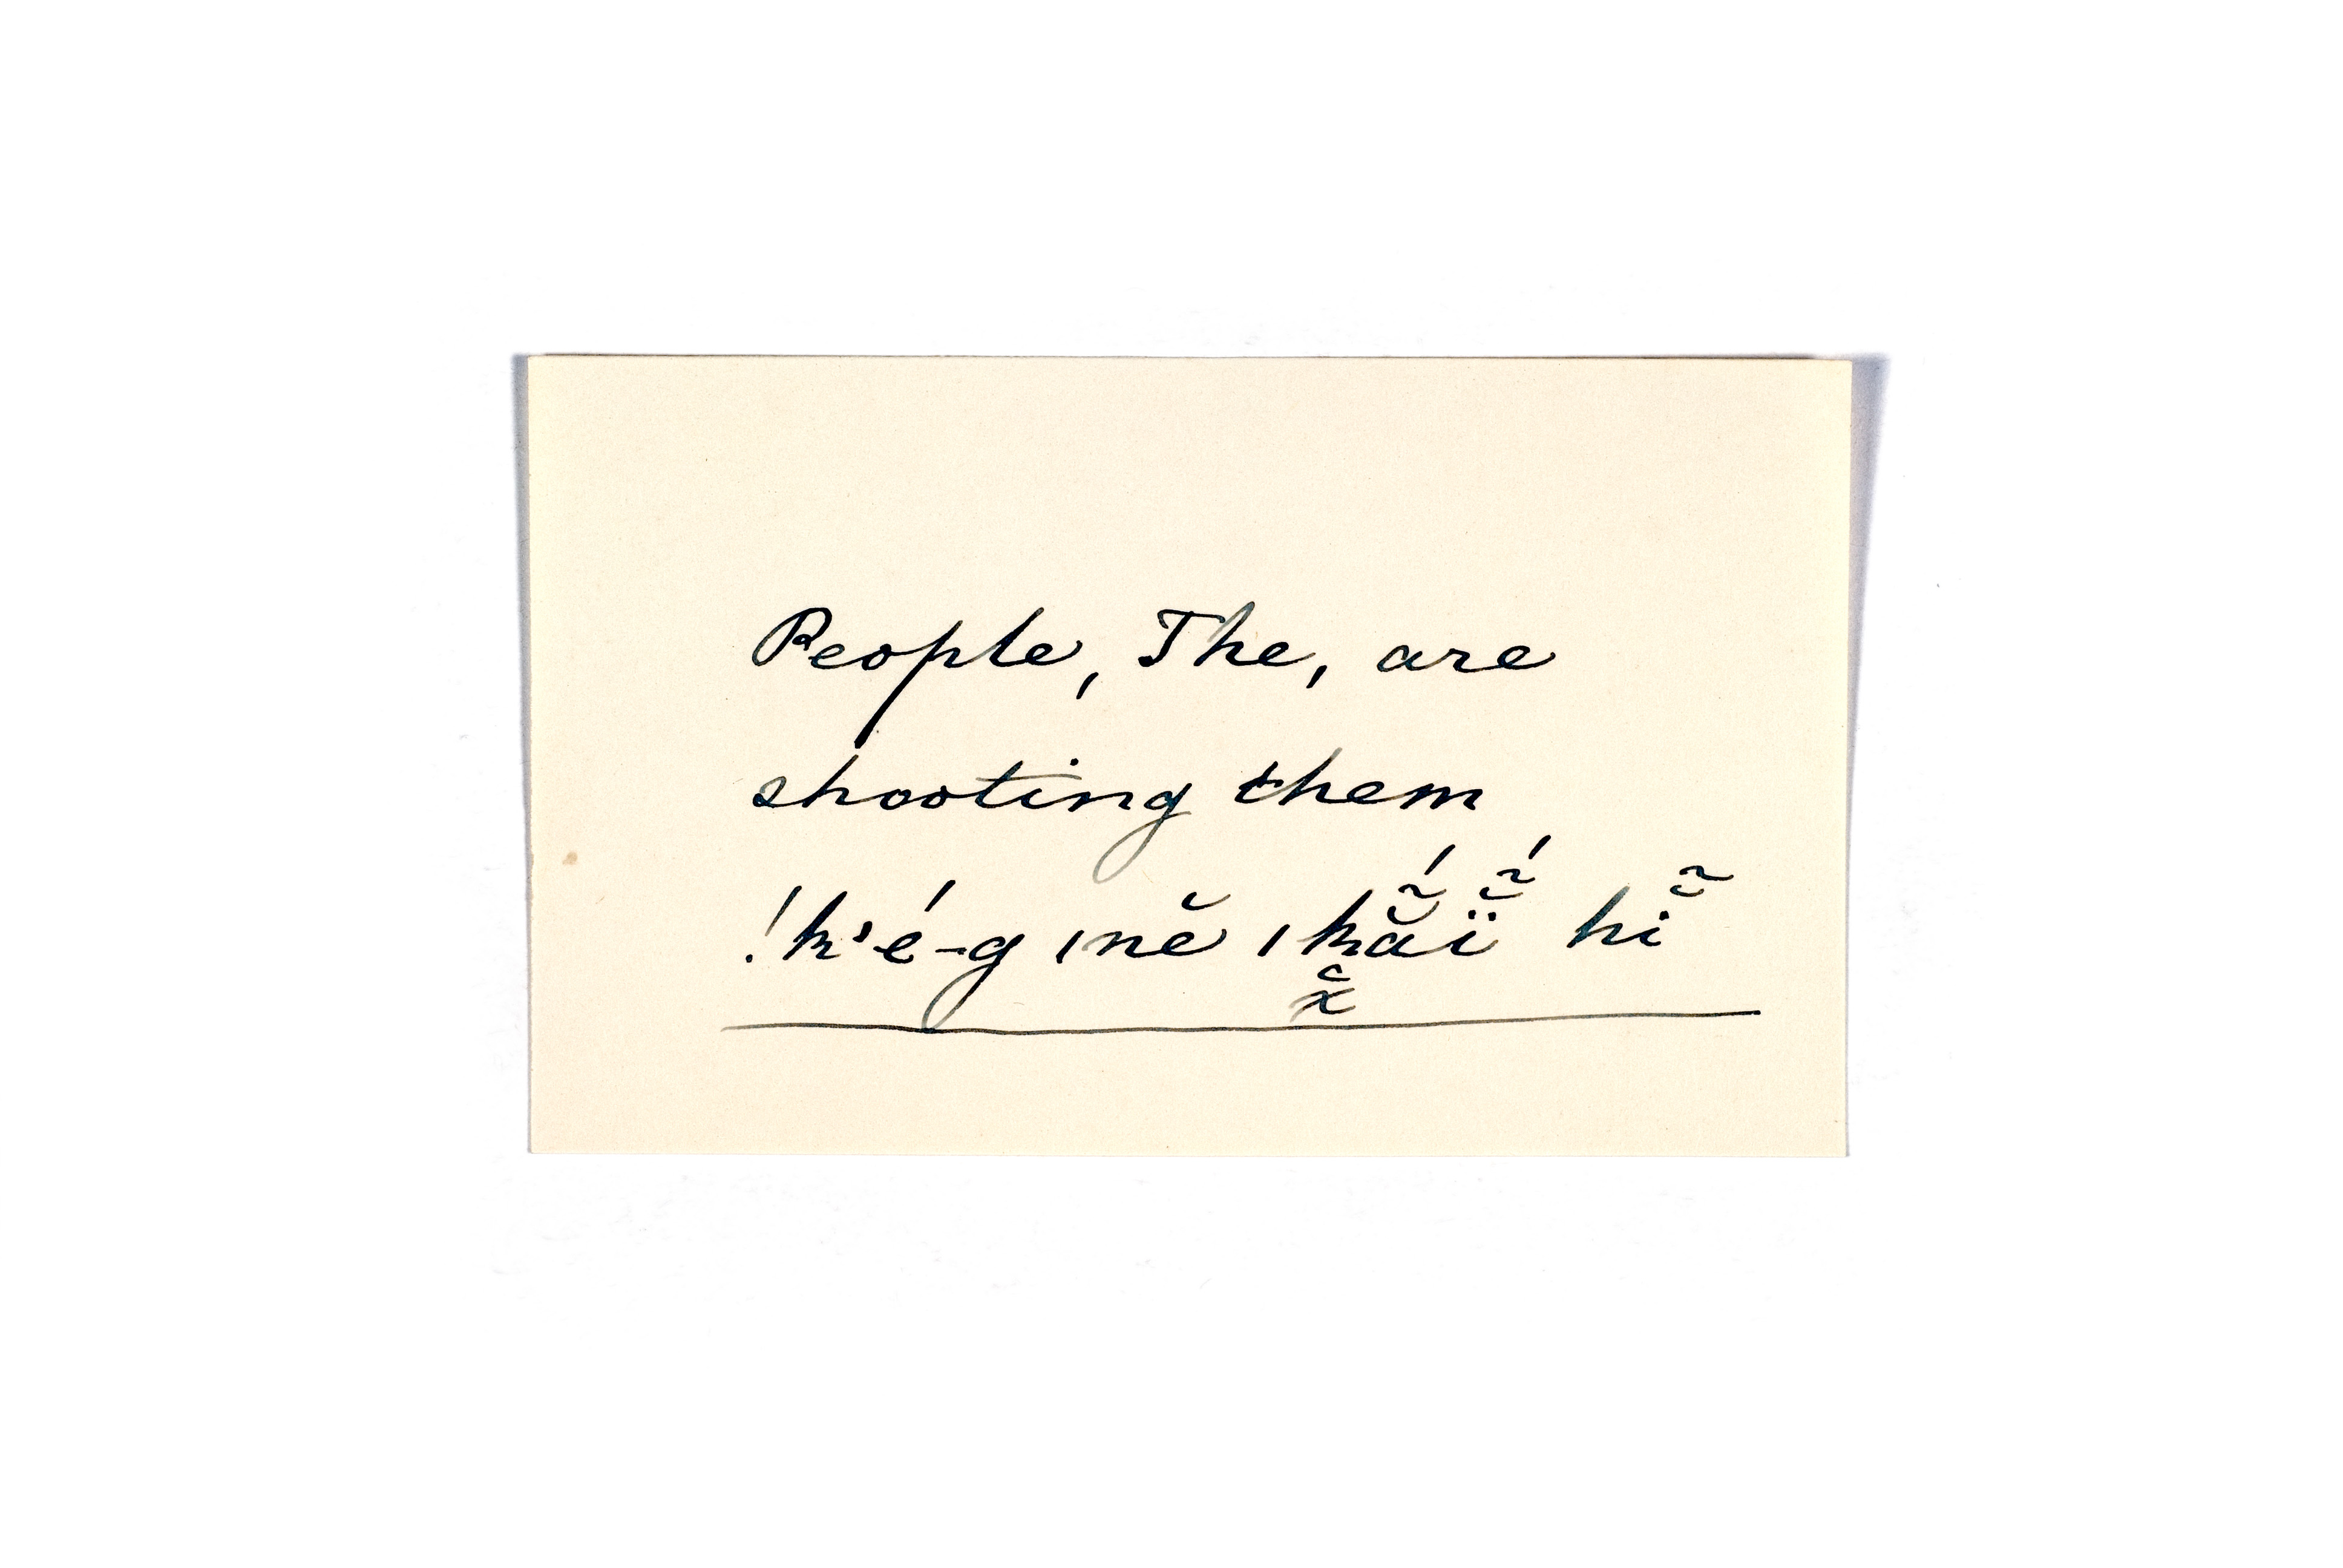 People, The, are
shooting them
!k'é-g ǀnĕ ǀk͓̆ắ̃ḯ̤̃ hĭ̃